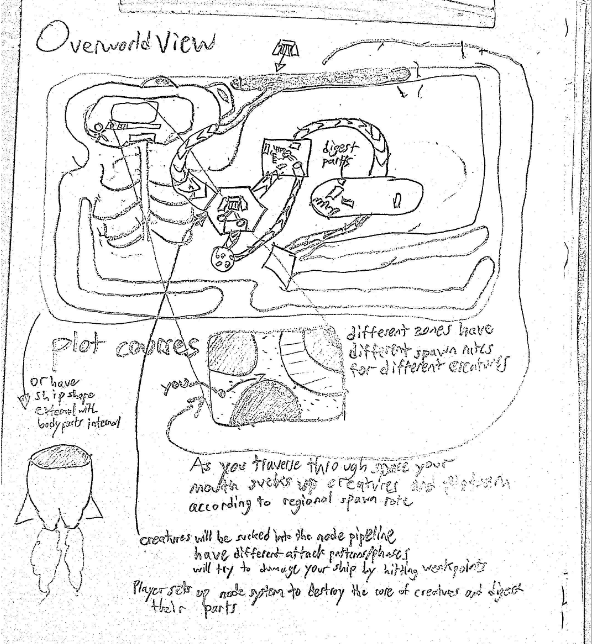 Overworld View
digest
parts
plot courses
different zones have
different spawn rates
for different creatures
or have
ship shape
external with
body parts internal
you
As you traverse through space your
mouth sucks up creatures and
according to regional spawn rate
creatures will be sucked into the node pipeline
have different attack patterns/phases
will try to damage your ship by hitting weakpoints
Player sets up node system to destroy the core of creatures and digest
their parts